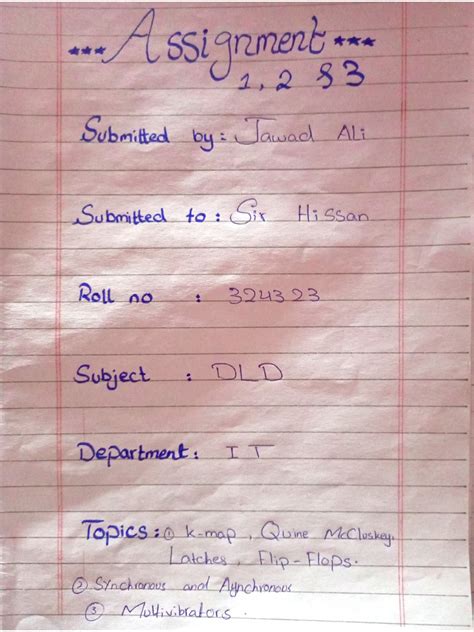 *** Assignment ***
1, 2 & 3
Submitted by: Jawad Ali
Submitted to: Sir Hissan
Roll no : 324323
Subject : DLD
Department: IT
Topics: ① K-map, Quine McCluskey.
Latches, Flip-Flops.
② Synchronous and Aynchronous
③ Multivibrators.